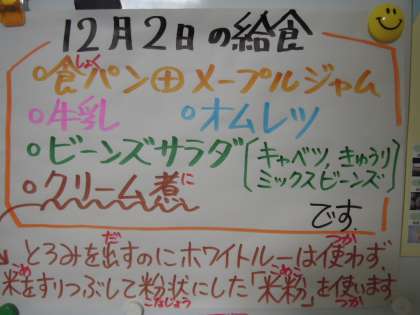 12月2日の給食
○食パン⊕メープルジャム
○牛乳 ○オムレツ
○ビーンズサラダ(キャベツ,きゅうり ミックスビーンズ)
○クリーム煮
です
とろみを出すのにホワイトルーは使わず
米をすりつぶして粉状にした「米粉」を使います